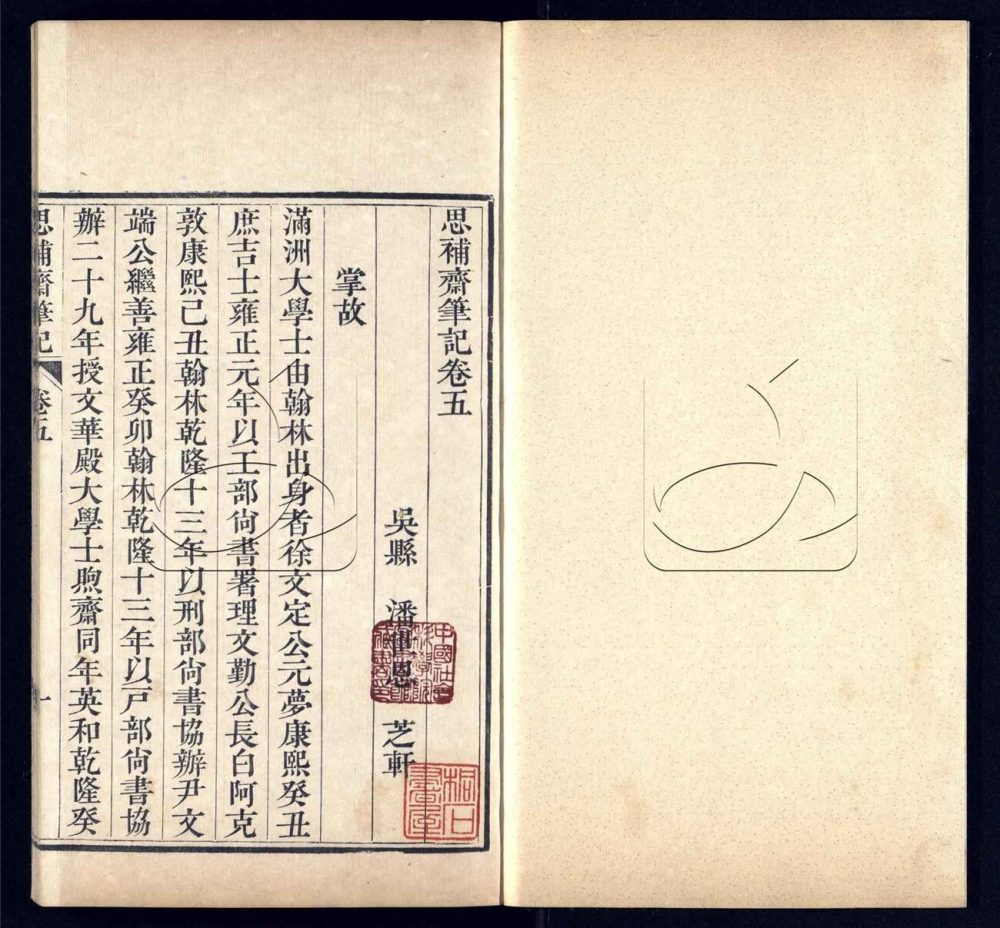 思補齋筆記卷五
吳縣 潘世恩 芝軒
掌故
滿洲大學士由翰林出身者徐文定公元夢康熙癸丑
庶吉士雍正元年以工部尙書署理文勤公長白阿克
敦康熙己丑翰林乾隆十三年以刑部尙書協辦尹文
端公繼善雍正癸卯翰林乾隆十三年以戸部尙書協
辦二十九年授文華殿大學士煦齋同年英和乾隆癸
思補齋筆記 卷五 一